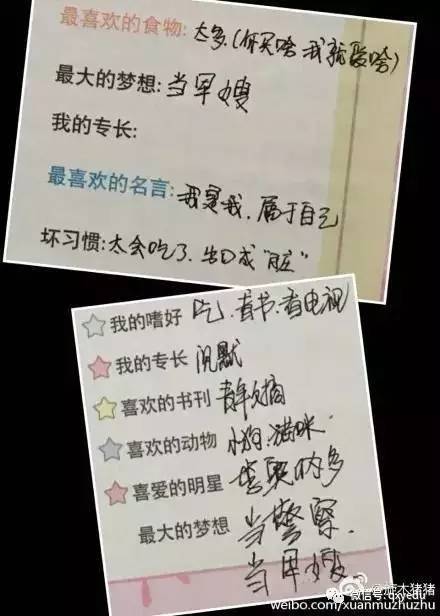 最喜欢的食物:太多.(你买啥 我就爱啥)
最大的梦想:当军嫂
我的专长:
最喜欢的名言:我是我,属于自己
坏习惯:太会吃了.出口成"脏"
我的嗜好 吃.看书.看电视
我的专长 沉默
喜欢的书刊 青年文摘
喜欢的动物 小狗.猫咪.
喜爱的明星 喜欢的多
最大的梦想 当警察.
当军嫂
微信号: qxyedu
weibo.com/xuanmuzhuzhu